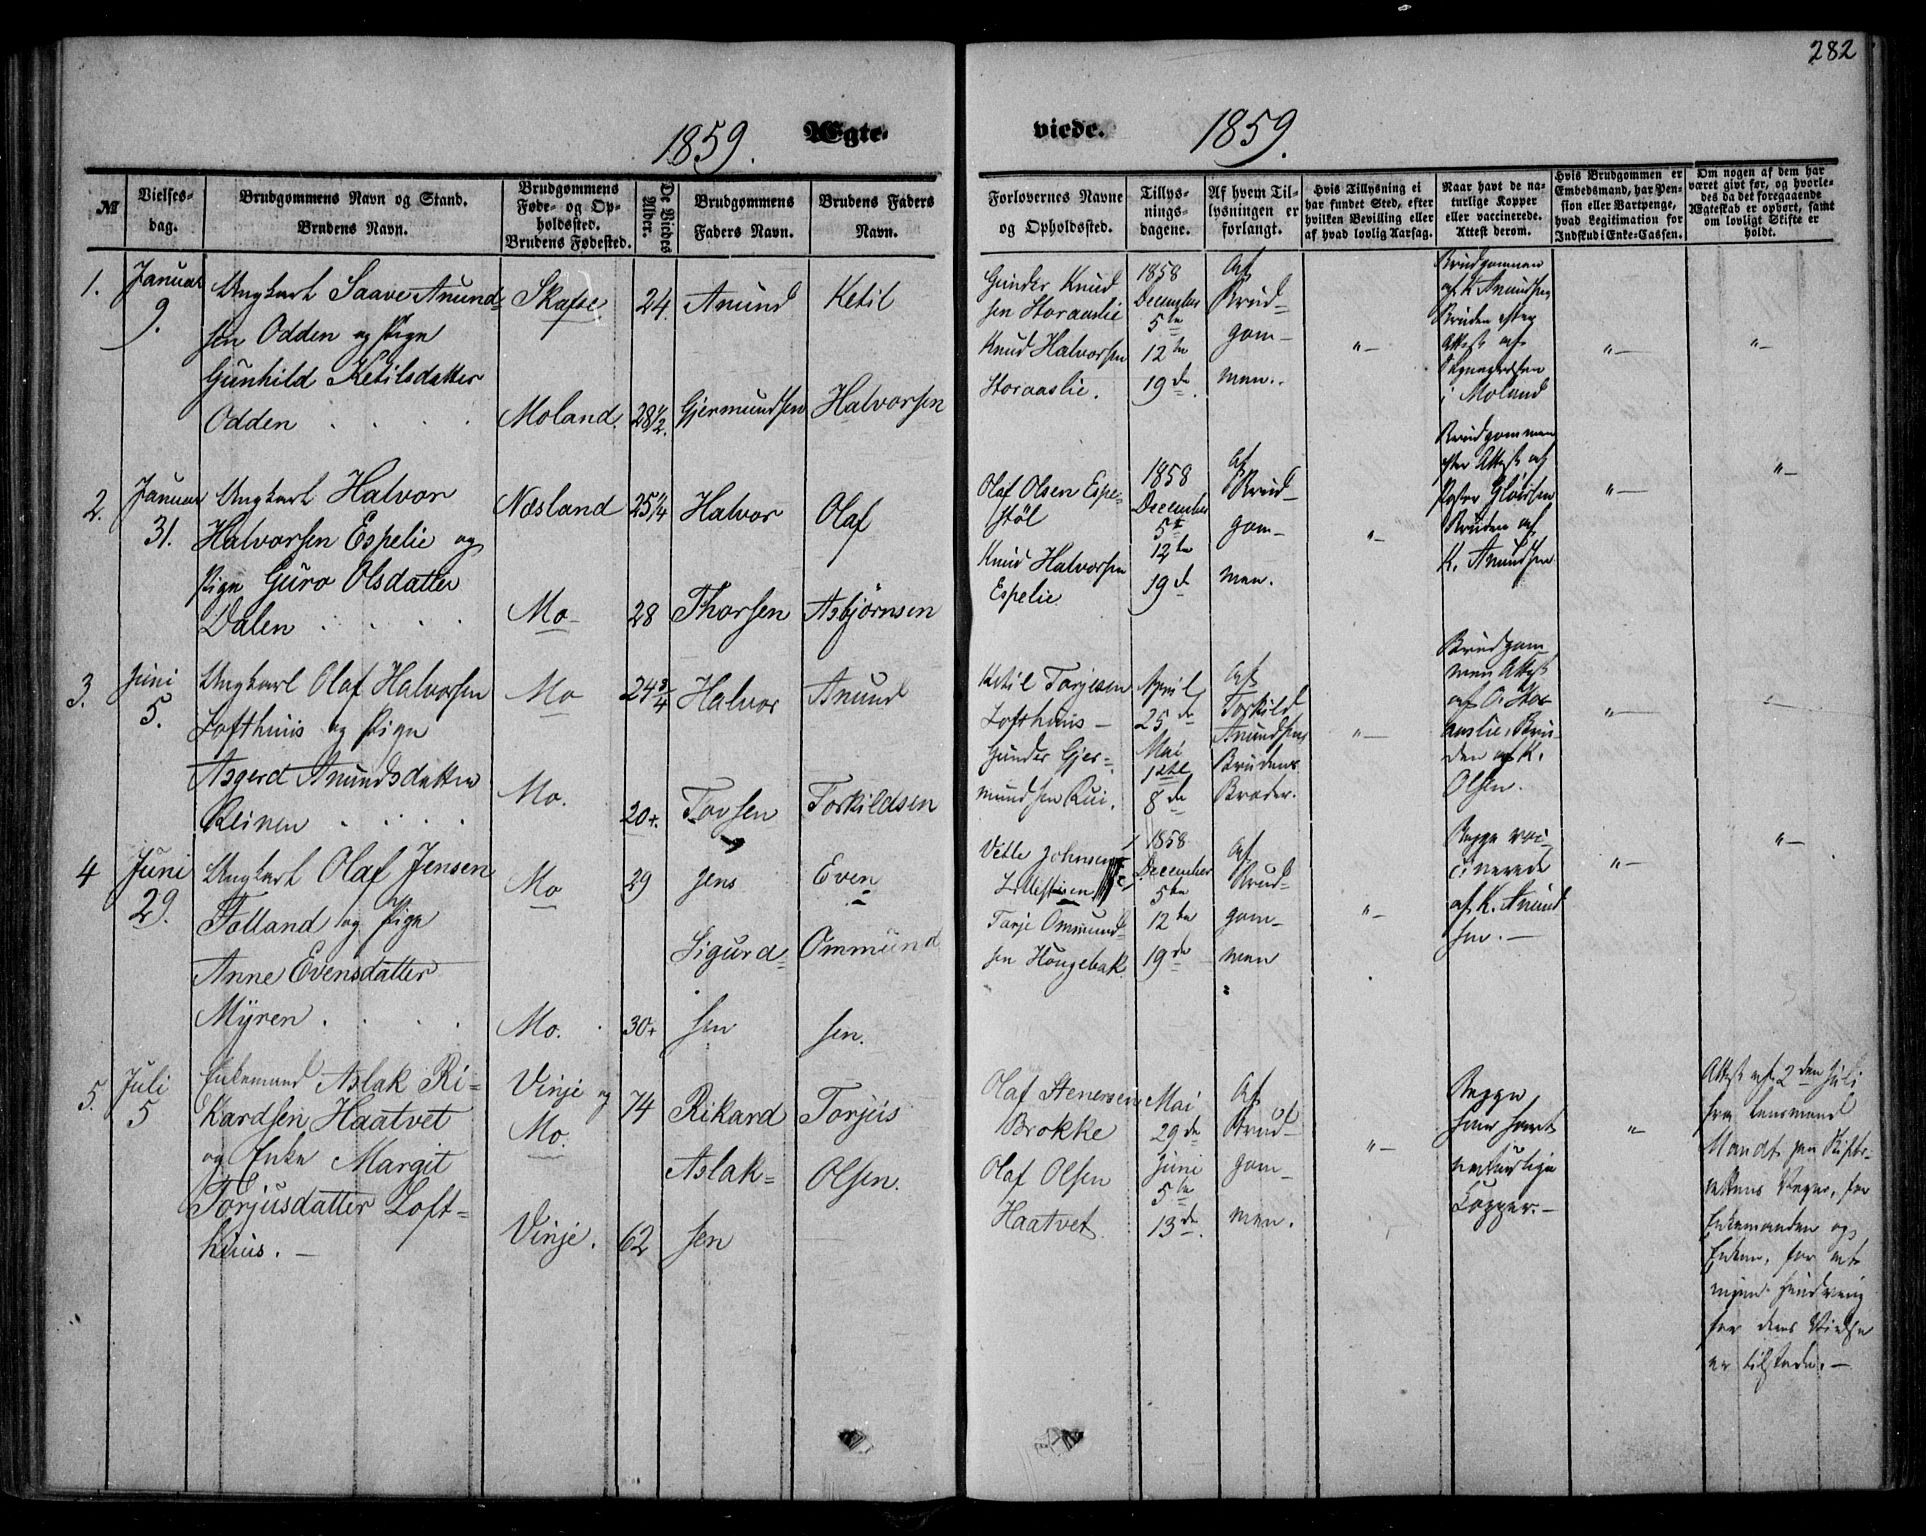 282
1859.
Ægte-
viede.
1859.
№
Vielses-
dag.
Brudgommens Navn og Stand.
Brudens Navn.
Brudgommens
Føde- og Op-
holdssted.
Brudens Fødested.
De Viedes
Alder.
Brudgommens
Faders Navn.
Brudens Faders
Navn.
Forlovernes Navne
og Opholdssted.
Tillys-
nings-
dagene.
Af hvem Til-
lysningen er
forlangt.
Hvis Tillysning ei
har fundet Sted, efter
hvilken Bevilling eller
af hvad lovlig Aarsag.
Naar havt de na-
turlige Kopper
eller vaccinerede.
Attest derom.
Hvis Brudgommen er
Embedsmand, har Pen-
sion eller Vartpenge,
hvad Legitimation for
Indskud i Enke-Cassen.
Om nogen af dem har
været givt før, og hvorle-
des da det foregaaende
Ægteskab er ophørt, samt
om lovligt Skifte er
holdt.
1.
Januar
9.
Ungkarl Saave Anund-
sen Odden og Pige
Gunhild Ketilsdatter
Odden . . . .
Skafse
Moland.
24.
28½.
Anund
Gjermundsen
Ketil
Halvorsen
Gunder Knud
sen Storaaslie
Knud Halvorsen
Storaaslie.
1858
December
5te
12te
19de
Af
Brud-
gom-
men.
"—
Brudgommen
af K Anundsen
Bruden efter
Attest af
i Moland
"—
"—
2.
Januar
31.
Ungkarl Halvor
Halvorsen Espelie og
Pige Guro Olsdatter
Dalen . . . .
Næsland
Mo
25¼
28
Halvor
Thorsen
Olaf
Asbjørnsen
Olaf Olsen Espe-
støl
Knud Halvorsen
Espelie
1858
December
5te
12te
19de
Af
Brud-
gom-
men.
"—
Brudgommen
efter Attest af
Bruden af
K. Anundsen
"—
"—
3.
Juni
5.
Ungkarl Olaf Halvorsen
Lofthuus og Pige
Asgerd Anundsdatter
Reinen . . . .
Mo
Mo.
24¾
20+.
Halvor
Tovsen
Anund
Torkildsen
Ketil Torjesen
Lofthuus —
Gunder Gjer-
mundsen Rui.
April
25de
Mai
1ste
8de
Af
Torkild
Anundsen
Brudens
Broder.
"—
Brudgom
men Attest
af O. Stor
aaslie, Bru-
den af K.
Olsen.
"—
"—
4
Juni
29.
Ungkarl Olaf Jensen
Folland og Pige
Anne Evensdatter
Myren . . . .
Mo
Mo.
29
30+
Jens
Sigurd-
sen
Even
Ommund
sen.
Vetle Johnsen
Tarje Ommund-
sen Hougebak
1858
December
5te
12te
19de
Af
Brud-
gom-
men
"—
Begge vac-
cinerede
af K. Anund
sen. —
"—
"—
5.
Juli
5
Enkemand Aslak Ri-
kardsen Haatvet
og Enke Margit
Torjusdatter Loft-
huus. —
Vinje og
Mo.
Vinje.
74
62
Rikard
Aslak-
sen
Torjus
Olsen.
Olaf Stenersen
Brokke
Olaf Olsen
Haatvet
Mai
29de
Juni
5te
13de.
Af
Brud-
gom-
men.
"—
Begge
have havt
naturlige
Kopper. —
"—
Attest af 2den Juli
fra Lensmand
Mandt paa Skifte-
rettens Vegne, for
Enkemanden og
Enken, for at
ingen Hindring
for deres Vielse
er tilstede. —